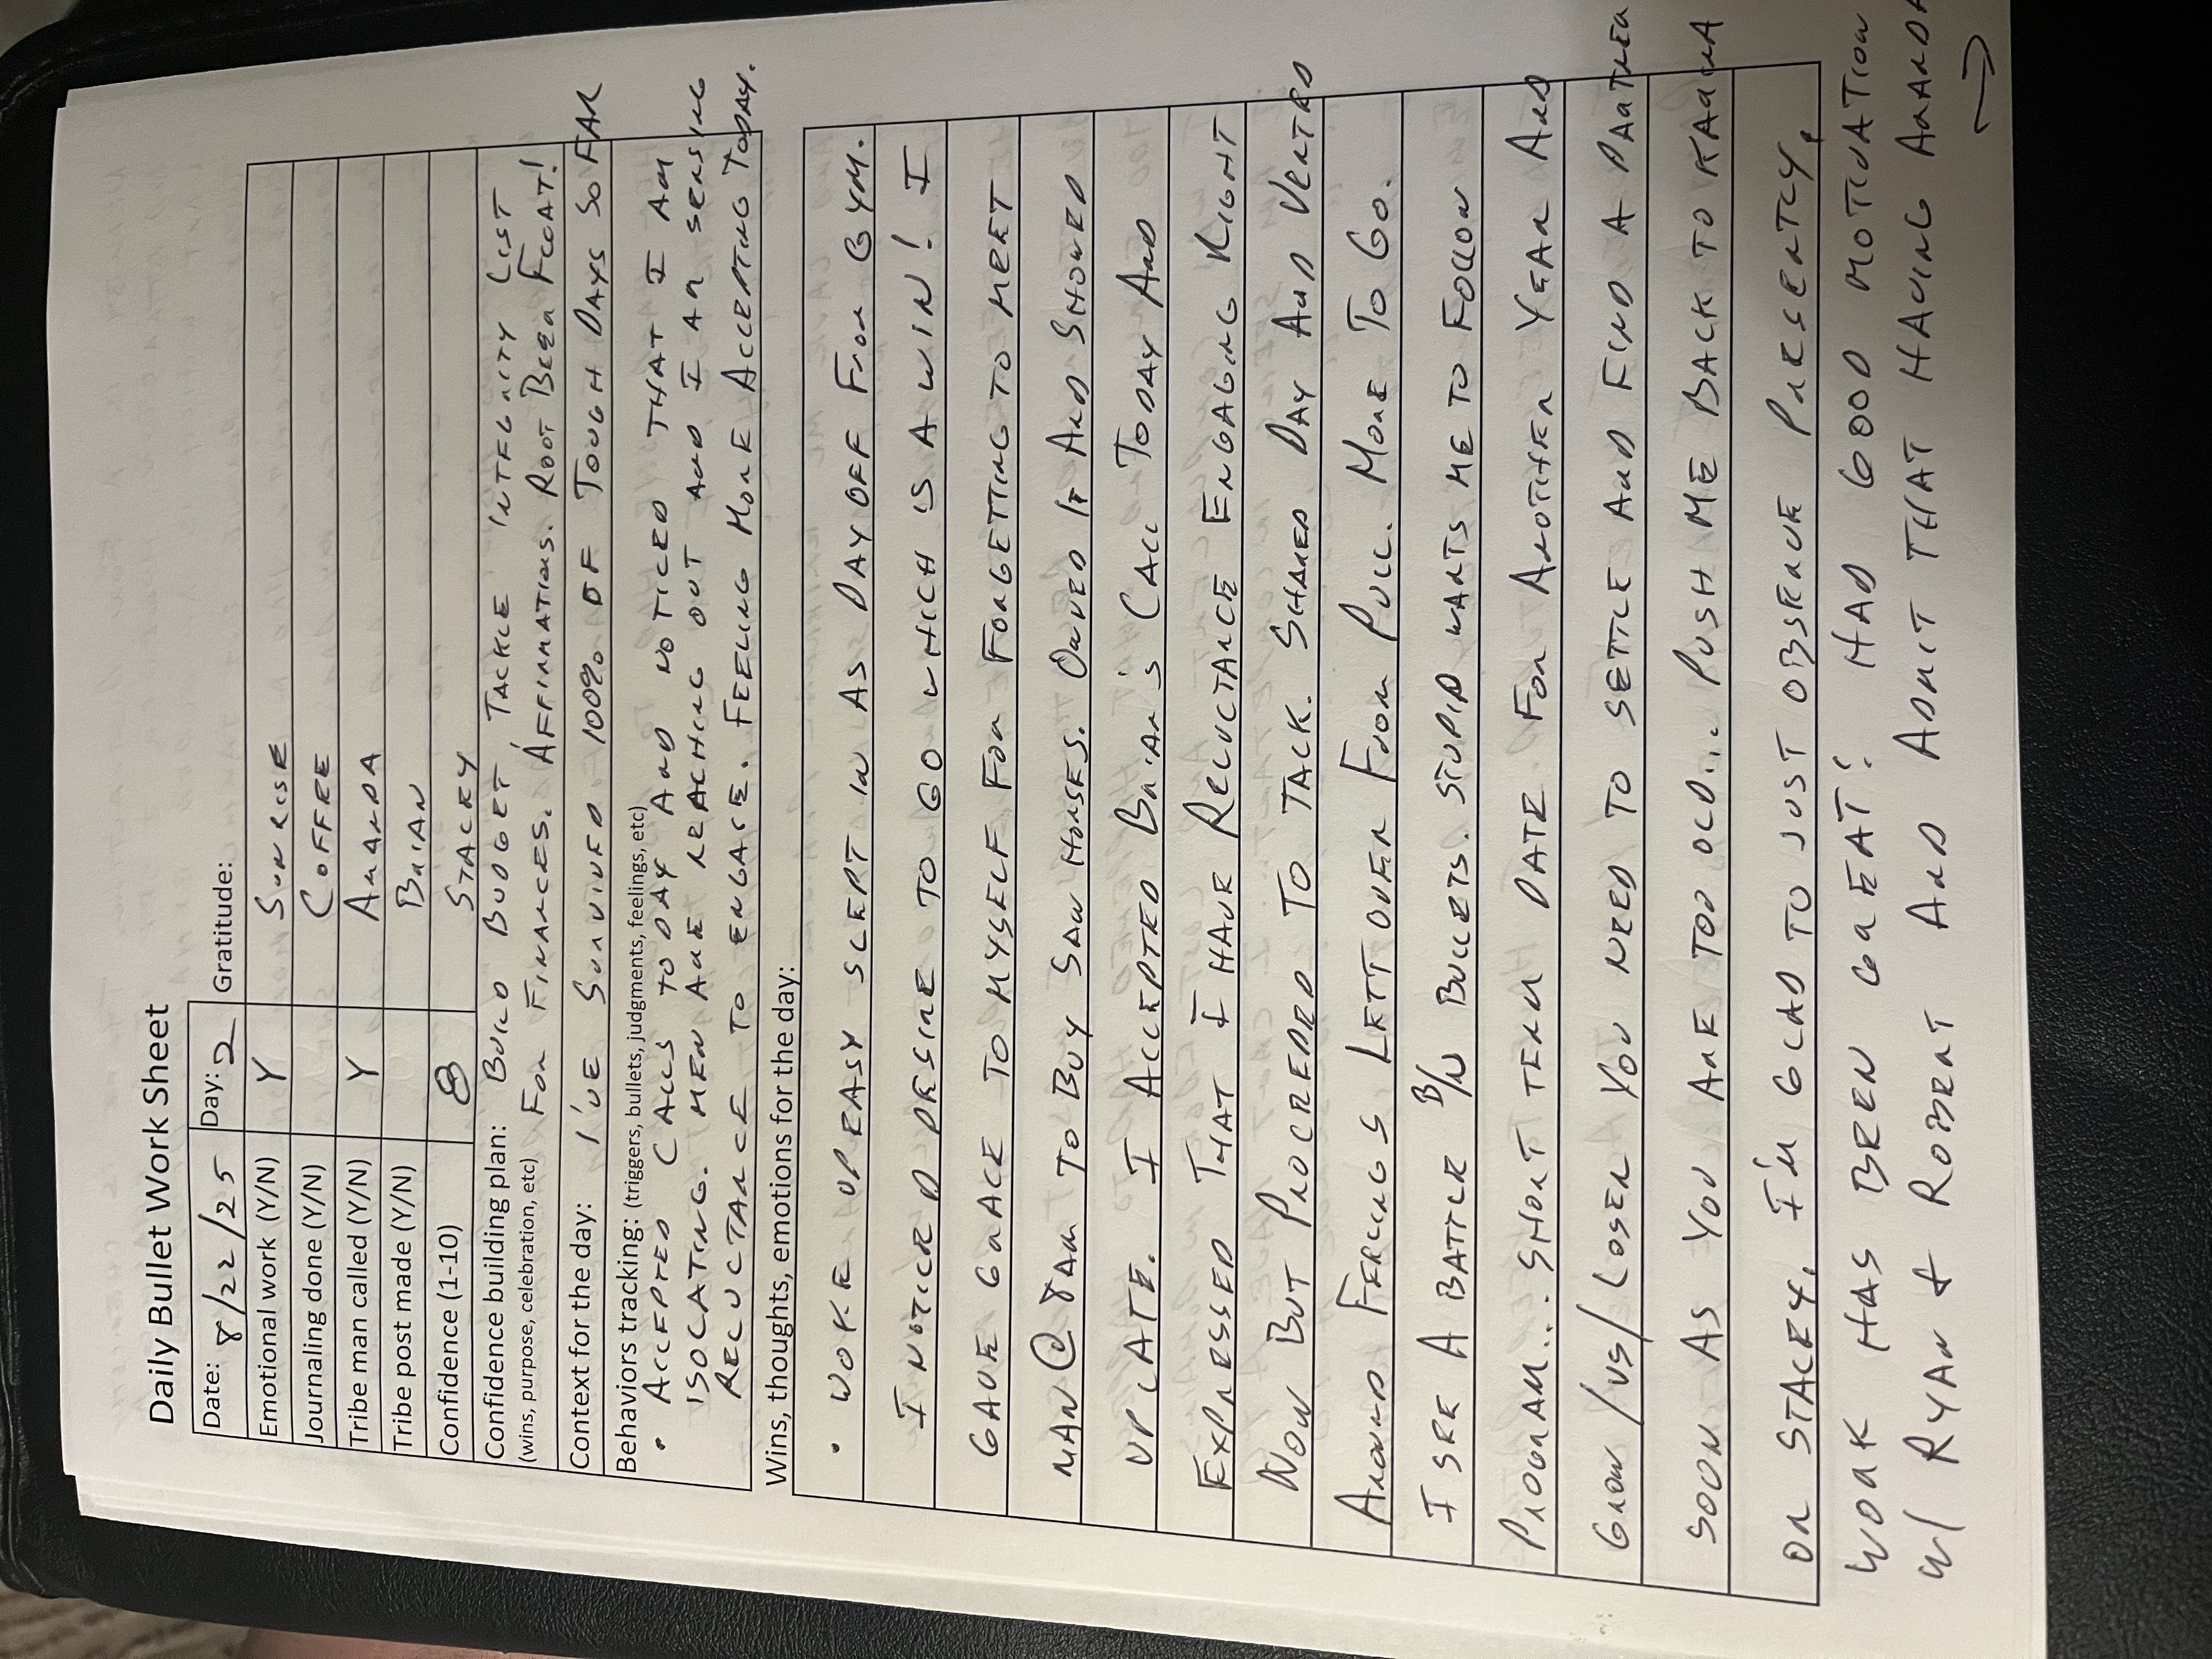 Daily Bullet Work Sheet
Date: 8/22/25 Day: 2 Gratitude:
Emotional work (Y/N) Y SUNRISE
Journaling done (Y/N) COFFEE
Tribe man called (Y/N) Y AMANDA
Tribe post made (Y/N) BRIAN
Confidence (1-10) 8 STACEY
Confidence building plan: BUILD BUDGET TACKLE INTEGRITY LIST
(wins, purpose, celebration, etc) FOR FINANCES. AFFIRMATIONS. ROOT BEER FLOAT!
Context for the day: I'VE SURVIVED 100% OF TOUGH DAYS SO FAR
Behaviors tracking: (triggers, bullets, judgments, feelings, etc)
• ACCEPTED CALLS TODAY AND NOTICED THAT I AM
ISOLATING. MEN ARE REACHING OUT AND I AM SENSING
RELUCTANCE TO ENGAGE. FEELING MORE ACCEPTING TODAY.
Wins, thoughts, emotions for the day:
• WOKE UP EASY SLEPT IN AS DAY OFF FROM GYM.
I NOTICED DESIRE TO GO WHICH IS A WIN! I
GAVE GRACE TO MYSELF FOR FORGETTING TO MEET
MAN @ 8AM TO BUY SAW HORSES. OWNED IT AND SHOWED
UP LATE. I ACCEPTED BRIAN'S CALL TODAY AND
EXPRESSED THAT I HAVE RELUCTANCE ENGAGING RIGHT
NOW BUT PROCEEDED TO TALK. SHARED DAY AND VENTED
AROUND FEELINGS LEFT OVER FROM PULL. MORE TO GO.
I SEE A BATTLE B/W BULLETS. STUPID WANTS ME TO FOLLOW
PROGRAM... SHORT TERM DATE FOR ANOTHER YEAR AND
GROW /VS/ LOSER YOU NEED TO SETTLE AND FIND A PARTNER
SOON AS YOU ARE TOO OLD... PUSH ME BACK TO KARMA
OR STACEY. I'M GLAD TO JUST OBSERVE PRESENTLY.
WORK HAS BEEN GREAT! HAD GOOD MOTIVATION
W/ RYAN & ROBERT AND ADMIT THAT HAVING AMANDA
→